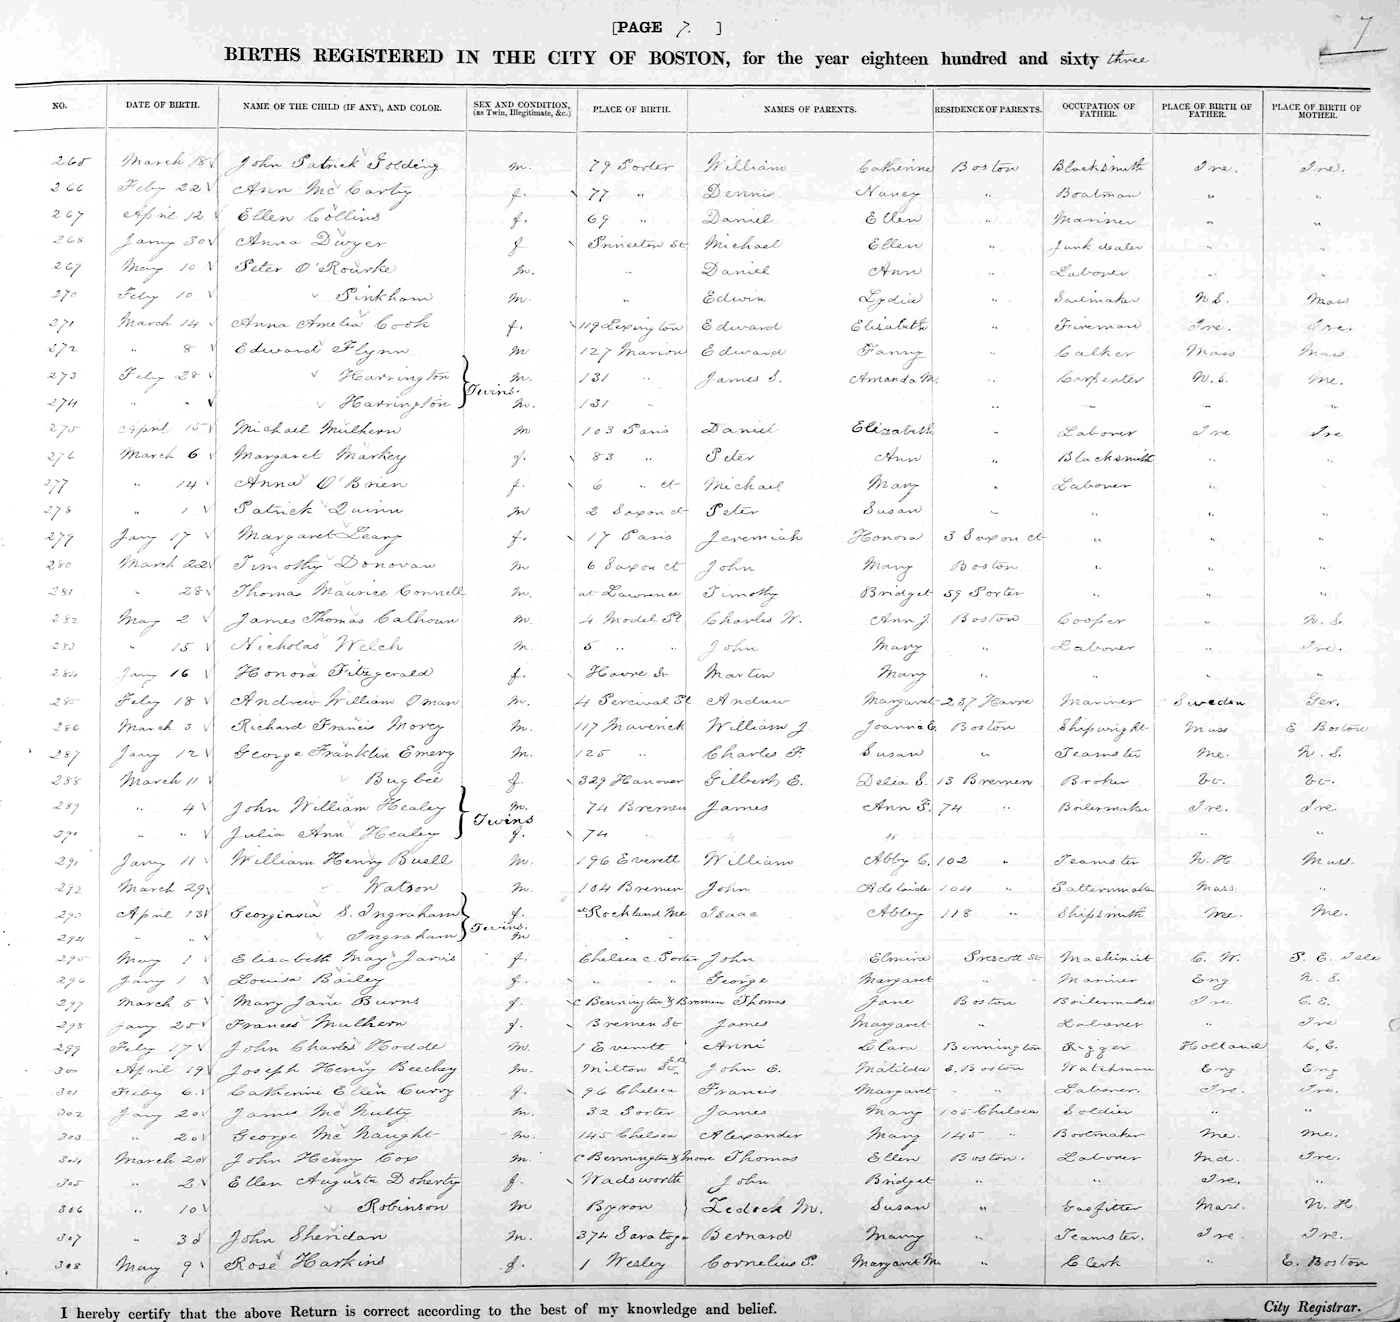 [PAGE 7. ]
7
BIRTHS REGISTERED IN THE CITY OF BOSTON, for the year eighteen hundred and sixty three
NO. DATE OF BIRTH. NAME OF THE CHILD (IF ANY), AND COLOR. SEX AND CONDITION, (as Twin, Illegitimate, &c.) PLACE OF BIRTH. NAMES OF PARENTS. RESIDENCE OF PARENTS. OCCUPATION OF FATHER. PLACE OF BIRTH OF FATHER. PLACE OF BIRTH OF MOTHER.
265 March 18 John Patrick Golding m. 79 Porter William Catherine Boston Blacksmith Ire. Ire.
266 Feby 22 Ann McCarty f. 77 " Dennis Nancy " Boatman " "
267 April 12 Ellen Collins f. 69 " Daniel Ellen " Mariner " "
268 Jany 30 Anna Dwyer f Princeton St Michael Ellen " Junk dealer " "
269 May 10 Peter O'Rourke m. " Daniel Ann " Laborer " "
270 Feby 10 Pinkham m. " Edwin Lydia " Sailmaker N.S. Mass
271 March 14 Anna Amelia Cook f. 119 Lexington Edward Elisabeth " Fireman Ire. Ire.
272 " 8 Edward Flynn m 127 Marion Edward Fanny " Calker Mass Mass
273 Feby 28 Harrington Twins. m. 131 " James S. Amanda M. " Carpenter N.S. Me.
274 " " Harrington m. 131 " " " "
275 April 15 Michael Mulhern m 103 Paris Daniel Elizabeth " Laborer Ire Ire
276 March 6 Margaret Markey f. 83 " Peter Ann " Blacksmith " "
277 " 14 Anna O'Brien f. 6 " ct Michael Mary " Laborer " "
278 " 1 Patrick Quinn m 2 Saxon ct Peter Susan " " " "
279 Jany 17 Margaret Leary f. 17 Paris Jeremiah Honora 3 Saxon ct " " "
280 March 22 Timothy Donovan m 6 Saxon ct John Mary Boston " " "
281 " 28 Thomas Maurice Connell m. at Lawrence Timothy Bridget 59 Porter " " "
282 May 2 James Thomas Calhoun m. 4 Model Pl Charles W. Ann J. Boston Cooper " N.S.
283 " 15 Nicholas Welch m. 5 " " John Mary " Laborer " Ire.
284 Jany 16 Honora Fitzgerald f. Havre St Martin Mary " " " "
285 Feby 18 Andrew William Oman m. 4 Percival Pl Andrew Margaret 237 Havre Mariner Sweden Ger.
286 March 3 Richard Francis Morey m. 117 Maverick William J. Joanna E. Boston Shipwright Mass E. Boston
287 Jany 12 George Franklin Emery m. 125 " Charles F. Susan " Teamster Me. N.S.
288 March 11 Bugbee f. 329 Hanover Gilbert E. Delia S. 13 Bremen Broker Vt. Vt.
289 " 4 John William Healey Twins m. 74 Bremen James Ann F. 74 " Boilermaker Ire. Ire
290 " " Julia Ann Healey f. 74 " " " "
291 Jany 11 William Henry Buell m. 196 Everett William Abby C. 102 " Teamster N.H. Mass.
292 March 29 Watson m. 104 Bremen John Adelaide 104 " Patternmaker Mass. "
293 April 13 Georgianna S. Ingraham Twins. f. at Rockland Me Isaac Abby 118 " Shipsmith Me. Me.
294 " " Ingraham m
295 May 1 Elisabeth May Jarvis f. Chelsea c. Porter John Elmira Prescott St Machinist C.W. P.E. Isle
296 Jany 1 Louisa Bailey f. " " " George Margaret " " Mariner Eng N.S.
297 March 5 Mary Jane Burns f. c Bennington & Bremen Thomas Jane Boston Boilermaker Ire. C.E.
298 Jany 25 Frances Mulhern f. Bremen St James Margaret " Laborer " Ire
299 Feby 17 John Charles Hodde m. 1 Everett Anni Clara Bennington Rigger Holland C.E.
300 April 19 Joseph Henry Beechey m. Milton John E. Matilda E. Boston Watchman Eng Eng
301 Feby 6 Catherine Ellen Curry f. 96 Chelsea Francis Margaret " " Laborer. Ire. Ire.
302 Jany 20 James McNulty m. 32 Porter James Mary 105 Chelsea Soldier " "
303 " 20 George McNaught m. 145 Chelsea Alexander Mary 145 " Bootmaker Me. Me.
304 March 20 John Henry Cox m. c Bennington & Moore Thomas Ellen Boston. Laborer Md. Ire.
305 " 2 Ellen Augusta Doherty f. Wadsworth John Bridget " " Ire. "
306 " 10 Robinson m Byron Zedock M. Susan " Gasfitter Mass. N.H.
307 " 30 John Sheridan m. 374 Saratoga Bernard Mary " Teamster. Ire Ire.
308 May 9 Rose Harkins f. 1 Wesley Cornelius P. Margaret M. " Clerk " E. Boston
I hereby certify that the above Return is correct according to the best of my knowledge and belief. City Registrar.